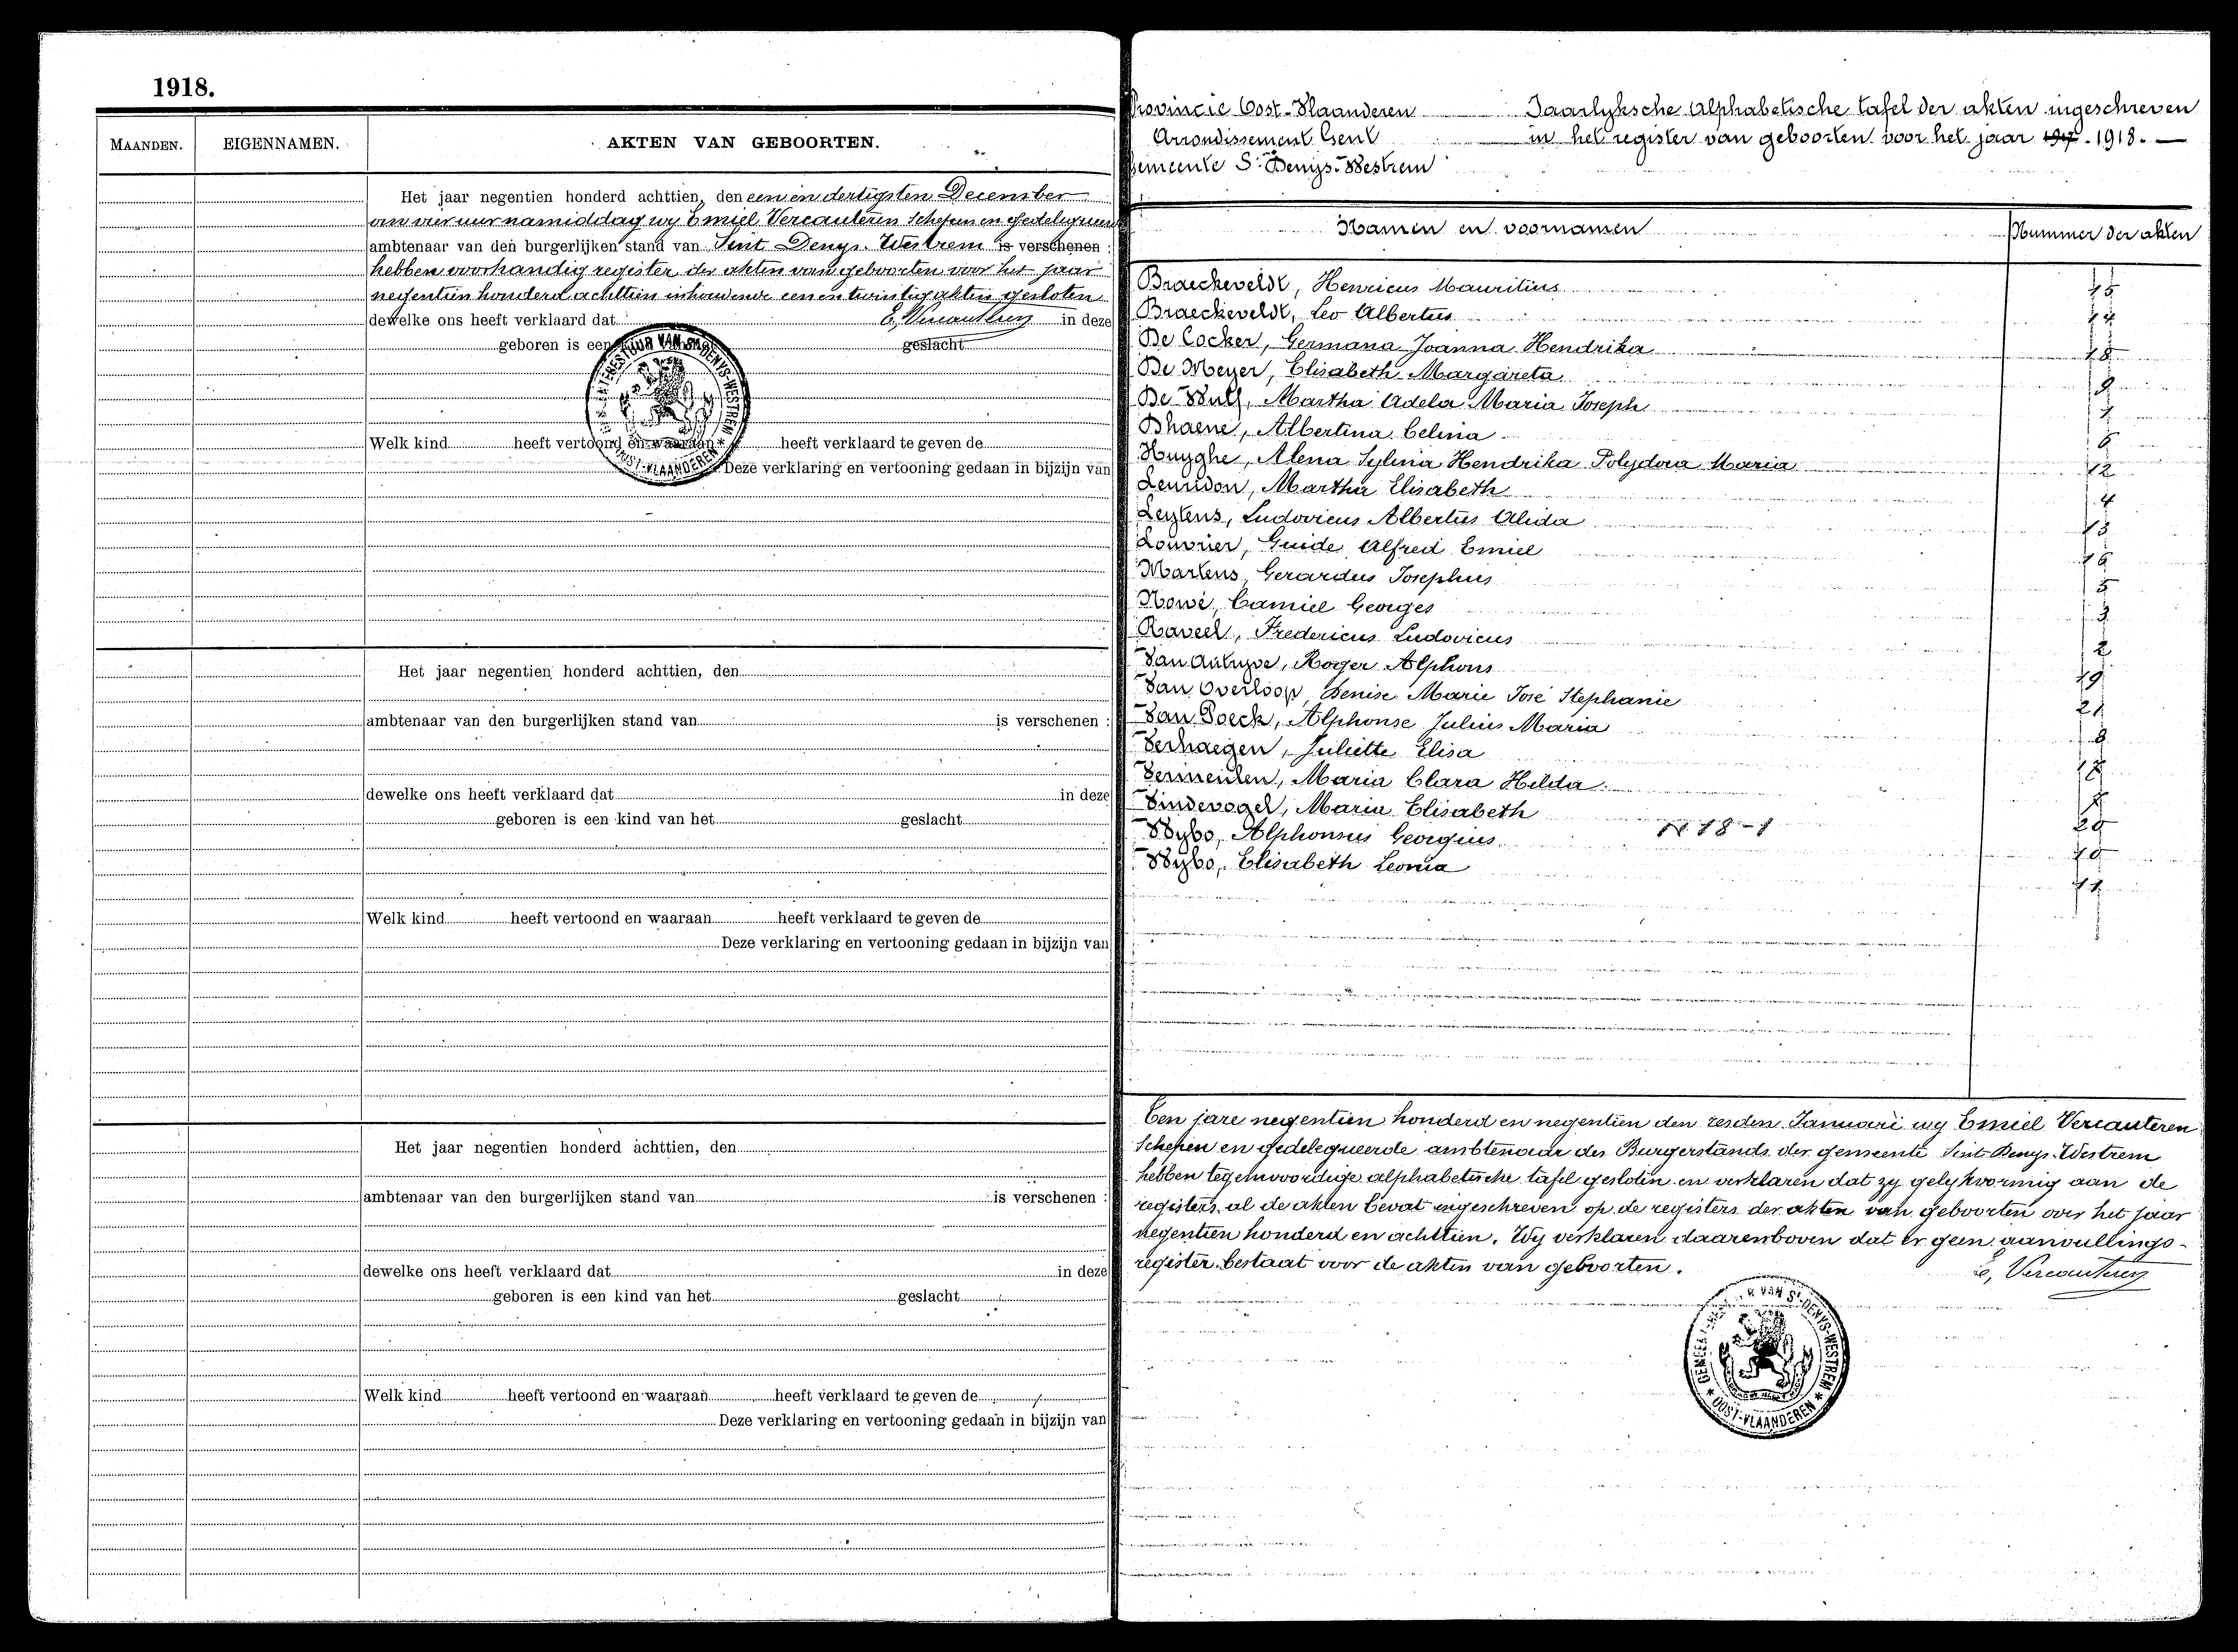 1918.
MAANDEN.
EIGENNAMEN.
AKTEN VAN GEBOORTEN.
Het jaar negentien honderd achttien, den een en dertigsten December
om vier uur namiddag wy Emiel Vercauteren Schepen en gedelegueerd
ambtenaar van den burgerlijken stand van Sint Denys-Westrem is verschenen :
hebben voorhandig register der akten van geboorten voor het jaar
negentien honderd achttien inhoudende een en twintig akten gesloten.
dewelke ons heeft verklaard dat E. Vercauteren in deze
geboren is een geslacht
Welk kind heeft vertoond en waaraan heeft verklaard te geven de
Deze verklaring en vertooning gedaan in bijzijn van
Het jaar negentien honderd achttien, den
ambtenaar van den burgerlijken stand van is verschenen :
dewelke ons heeft verklaard dat in deze
geboren is een kind van het geslacht
Welk kind heeft vertoond en waaraan heeft verklaard te geven de
Deze verklaring en vertooning gedaan in bijzijn van
Het jaar negentien honderd achttien, den
ambtenaar van den burgerlijken stand van is verschenen :
dewelke ons heeft verklaard dat in deze
geboren is een kind van het geslacht
Welk kind heeft vertoond en waaraan heeft verklaard te geven de
Deze verklaring en vertooning gedaan in bijzijn van
Provincie Oost-Vlaanderen Jaarlyksche Alphabetische tafel der akten ingeschreven
Arrondissement Gent in het register van geboorten voor het jaar 1917. 1918.
Gemeente St Denys-Westrem
Namen en voornamen
Nummer der akten
Braeckeveldt, Henricus Mauritius
Braeckeveldt, Leo Albertus
De Cocker, Germana Joanna Hendrika
De Meyer, Elisabeth Margareta
De Wulf, Martha Adela Maria Joseph
Dhaene, Albertina Celina
Huyghe, Alena Sylvia Hendrika Polydora Maria 12
Martha Elisabeth 4
Leytens, Ludovicus Albertus Alida
Guide Alfred Emiel
Martens, Gerardus Josephus
Camiel Georges
Raveel, Fredericus Ludovicus
Roger Alphons 19
Van Overloop Denise Marie José Stephanie 21
Alphonse Julius Maria
Verhaegen, Juliette Elisa
Vermeulen, Maria Clara Hilda
Vindevogel, Maria Elisabeth
Wybo, Alphonsus Georgius
Wybo, Elisabeth Leonia
Ten jare negentien honderd en negentien den zesden Januari wy Emiel Vercauteren
Schepen en gedelegueerde ambtenaar des Burgerstands der gemeente Sint Denys-Westrem
hebben tegenwoordige alphabetische tafel gesloten en verklaren dat zy gelykvormig aan de
registers al de akten bevat ingeschreven op de registers der akten van geboorten voor het jaar
negentien honderd en achttien. Wy verklaren daarenboven dat er geen aanvullings-
register bestaat voor de akten van geboorten.
E. Vercauteren
VAN St DENYS-WESTREM
OOST-VLAANDEREN